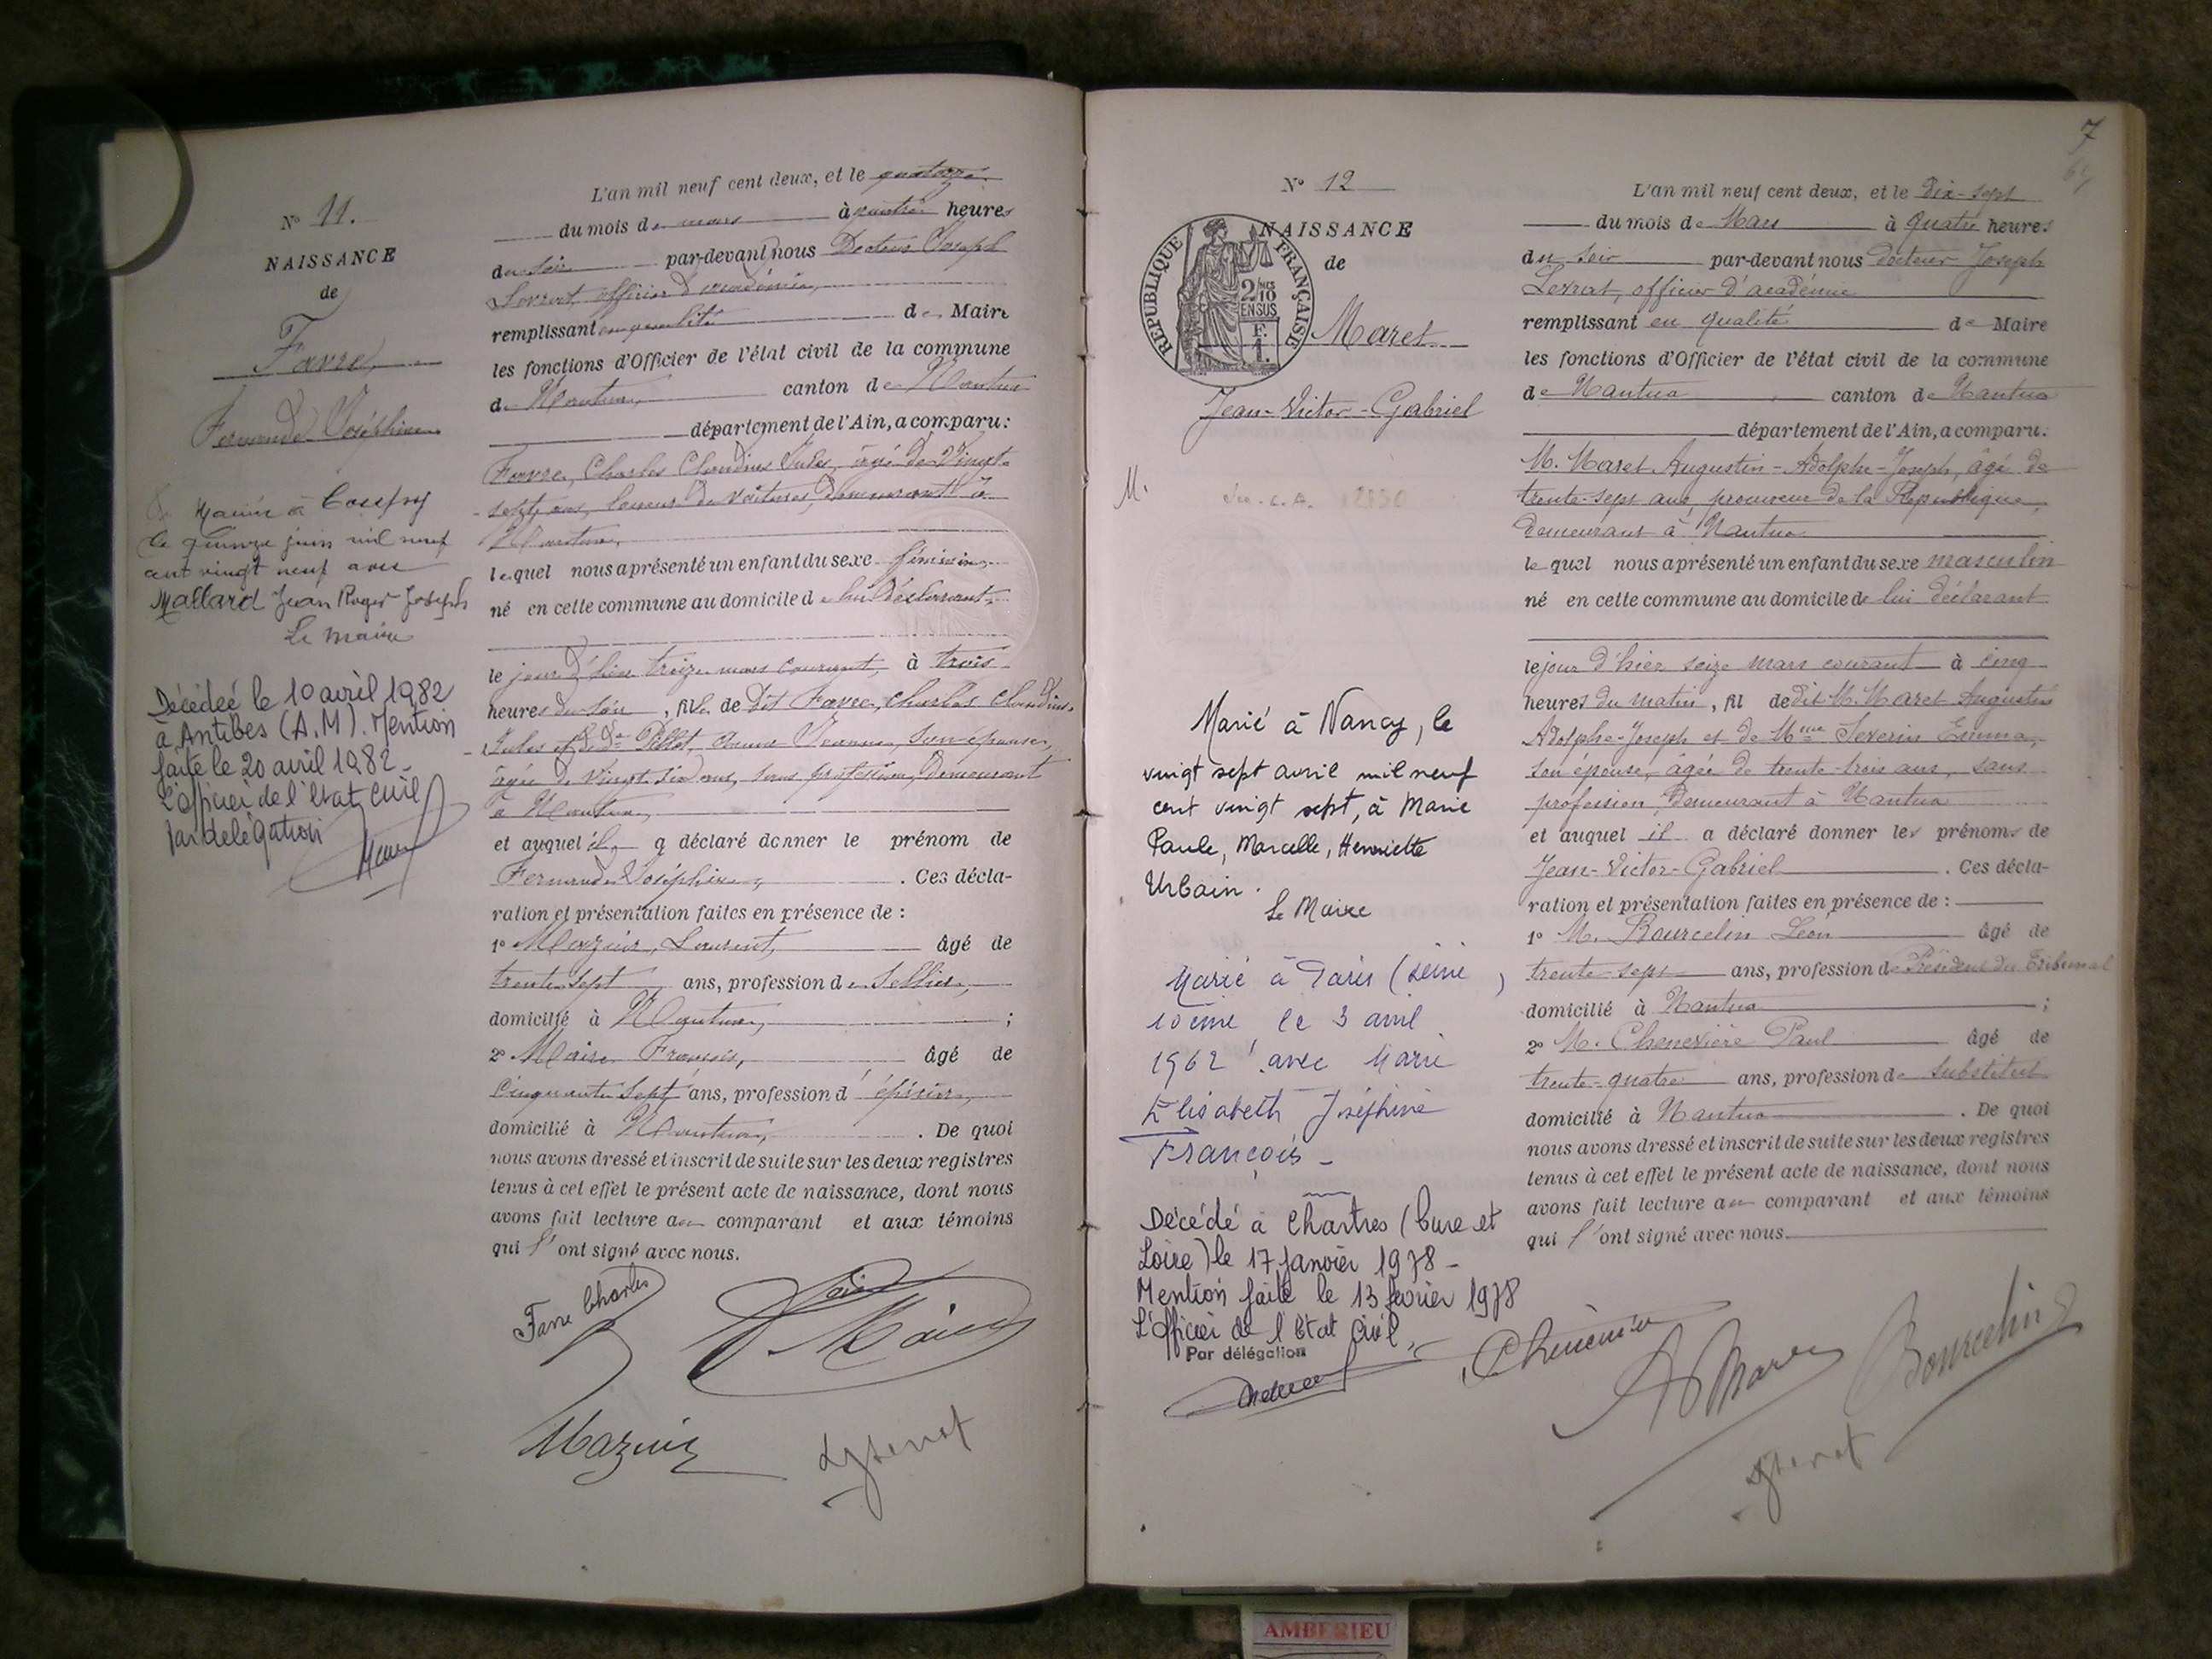 N° 11.
NAISSANCE
de
Favre
Fernande Joséphine
Mariée à
le quinze juin mil neuf
cent vingt neuf avec
Mallard Jean Roger Joseph
Le Maire
Décédée le 10 avril 1982
à Antibes (A.M). Mention
faite le 20 avril 1982.
L'officier de l'état civil
par délégation
L'an mil neuf cent deux, et le quatorze
du mois de mars à quatre heures
du soir par-devant nous Docteur Joseph
officier d'académie,
remplissant en qualité de Maire
les fonctions d'Officier de l'état civil de la commune
de Nantua, canton de Nantua
département de l'Ain, a comparu:
Favre, Charles Claudius Jules, âgé de Vingt-
sept ans, loueur de voitures, demeurant à
Nantua,
lequel nous a présenté un enfant du sexe féminin
né en cette commune au domicile de lui déclarant,
le jour d'hier treize mars courant, à trois
heures du soir, fille de dit Favre, Charles Claudius
Jules et de Pillot, Jeanne, son épouse,
âgée de vingt six ans, sans profession, demeurant
à Nantua,
et auquel il a déclaré donner le prénom de
Fernande Joséphine, . Ces décla-
ration et présentation faites en présence de :
1° Mazuir, Laurent, âgé de
trente sept ans, profession de Sellier,
domicilié à Nantua, ;
2° Maire François, âgé de
cinquante sept ans, profession d'épicier,
domicilié à Nantua, . De quoi
nous avons dressé et inscrit de suite sur les deux registres
tenus à cet effet le présent acte de naissance, dont nous
avons fait lecture au comparant et aux témoins
qui l'ont signé avec nous.
Favre Charles
Maire
Mazuir
7
N° 12
NAISSANCE
de
REPUBLIQUE FRANÇAISE
2/10 EN SUS
F. 1.
Maret
Jean-Victor-Gabriel
M.
Marié à Nancy, le
vingt sept avril mil neuf
cent vingt sept, à Marie
Paule, Marcelle, Henriette
Urbain.
Le Maire
Marié à Paris (Seine)
10ème le 3 avril
1962 avec Marie
Elisabeth Joséphine
François -
Décédé à Chartres (Eure et
Loire) le 17 janvier 1978 -
Mention faite le 13 février 1978
L'Officier de l'Etat Civil,
Par délégation
L'an mil neuf cent deux, et le dix-sept
du mois de Mars à quatre heures
du soir par-devant nous docteur Joseph
officier d'académie
remplissant en qualité de Maire
les fonctions d'Officier de l'état civil de la commune
de Nantua canton de Nantua
département de l'Ain, a comparu.
M. Maret Augustin-Adolphe-Joseph, âgé de
trente-sept ans, procureur de la République,
demeurant à Nantua
lequel nous a présenté un enfant du sexe masculin
né en cette commune au domicile de lui déclarant
le jour d'hier seize mars courant à cinq
heures du matin, fil de dit M. Maret Augustin
Adolphe-Joseph et de Mme Severin Emma,
son épouse, âgée de trente-trois ans, sans
profession, demeurant à Nantua
et auquel il a déclaré donner les prénoms de
Jean-Victor-Gabriel . Ces décla-
ration et présentation faites en présence de :
1° M. Bourcelin Léon âgé de
trente-sept ans, profession de Président du Tribunal
domicilié à Nantua ;
2° M. Chenevière Paul âgé de
trente-quatre ans, profession de substitut
domicilié à Nantua . De quoi
nous avons dressé et inscrit de suite sur les deux registres
tenus à cet effet le présent acte de naissance, dont nous
avons fait lecture au comparant et aux témoins
qui l'ont signé avec nous.
Bourcelin
AMBERIEU